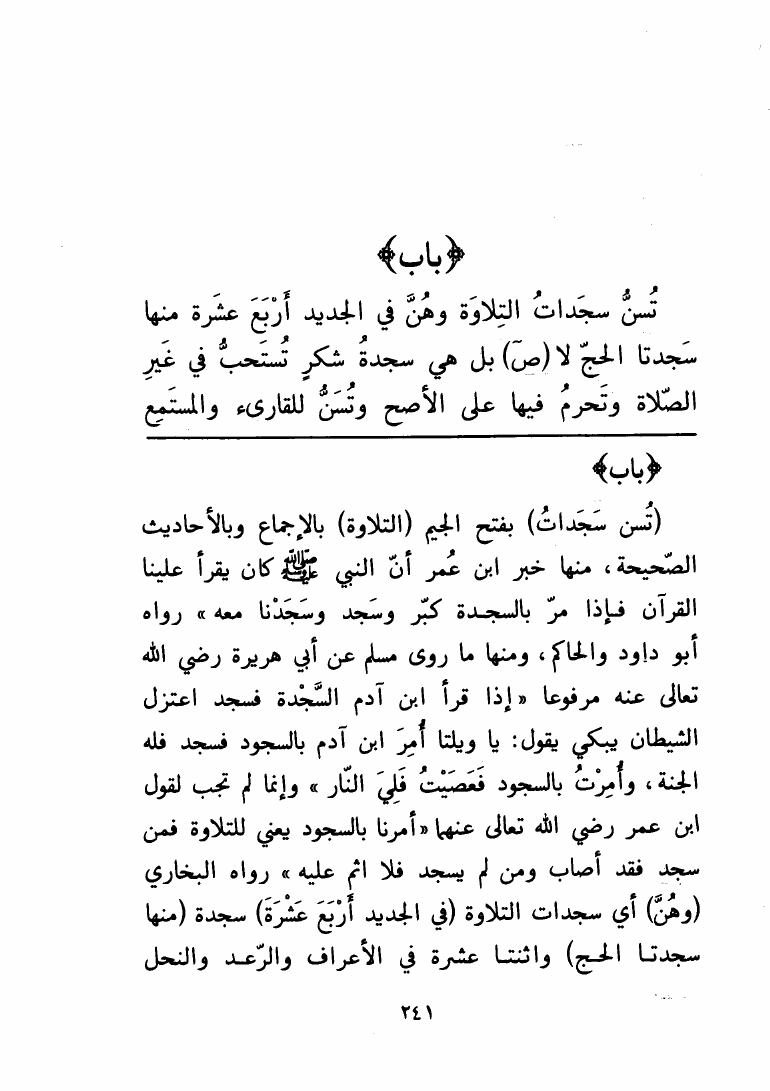 ﴿باب﴾
تُسنُّ سجَداتُ التِلاوَة وهُنَّ في الجديد أَرْبَعَ عشَرة منها
سَجدتا الحجّ لا (صَ) بل هي سجدةُ شكرٍ تُستَحبُّ في غَيرِ
الصّلاة وتَحرمُ فيها على الأصح وتُسَنُّ للقارىء والمستَمِع
﴿باب﴾
(تُسن سَجَداتُ) بفتح الجيم (التلاوة) بالإجماع وبالأحاديث
الصّحيحة، منها خبر ابن عُمر أنّ النبي ﷺ كان يقرأ علينا
القرآن فإذا مرّ بالسجدة كبّر وسَجد وسَجَدْنا معه » رواه
أبو داود والحاكم، ومنها ما روى مسلم عن أبي هريرة رضي الله
تعالى عنه مرفوعا «إذا قرأ ابن آدم السَّجْدة فسجد اعتزل
الشيطان يبكي يقول: يا ويلتا أُمِرَ ابن آدم بالسجود فسجد فله
الجنة، وأُمِرْتُ بالسجود فَعَصَيْتُ فَلِيَ النّار » وإنما لم تجب لقول
ابن عمر رضي الله تعالى عنهما «أمرنا بالسجود يعني للتلاوة فمن
سجد فقد أصاب ومن لم يسجد فلا اثم عليه » رواه البخاري
(وهُنَّ) أي سجدات التلاوة (في الجديد أَرْبَعَ عَشْرَةَ) سجدة (منها
سجدتا الحج) واثنتا عشرة في الأعراف والرّعد والنحل
٢٤١